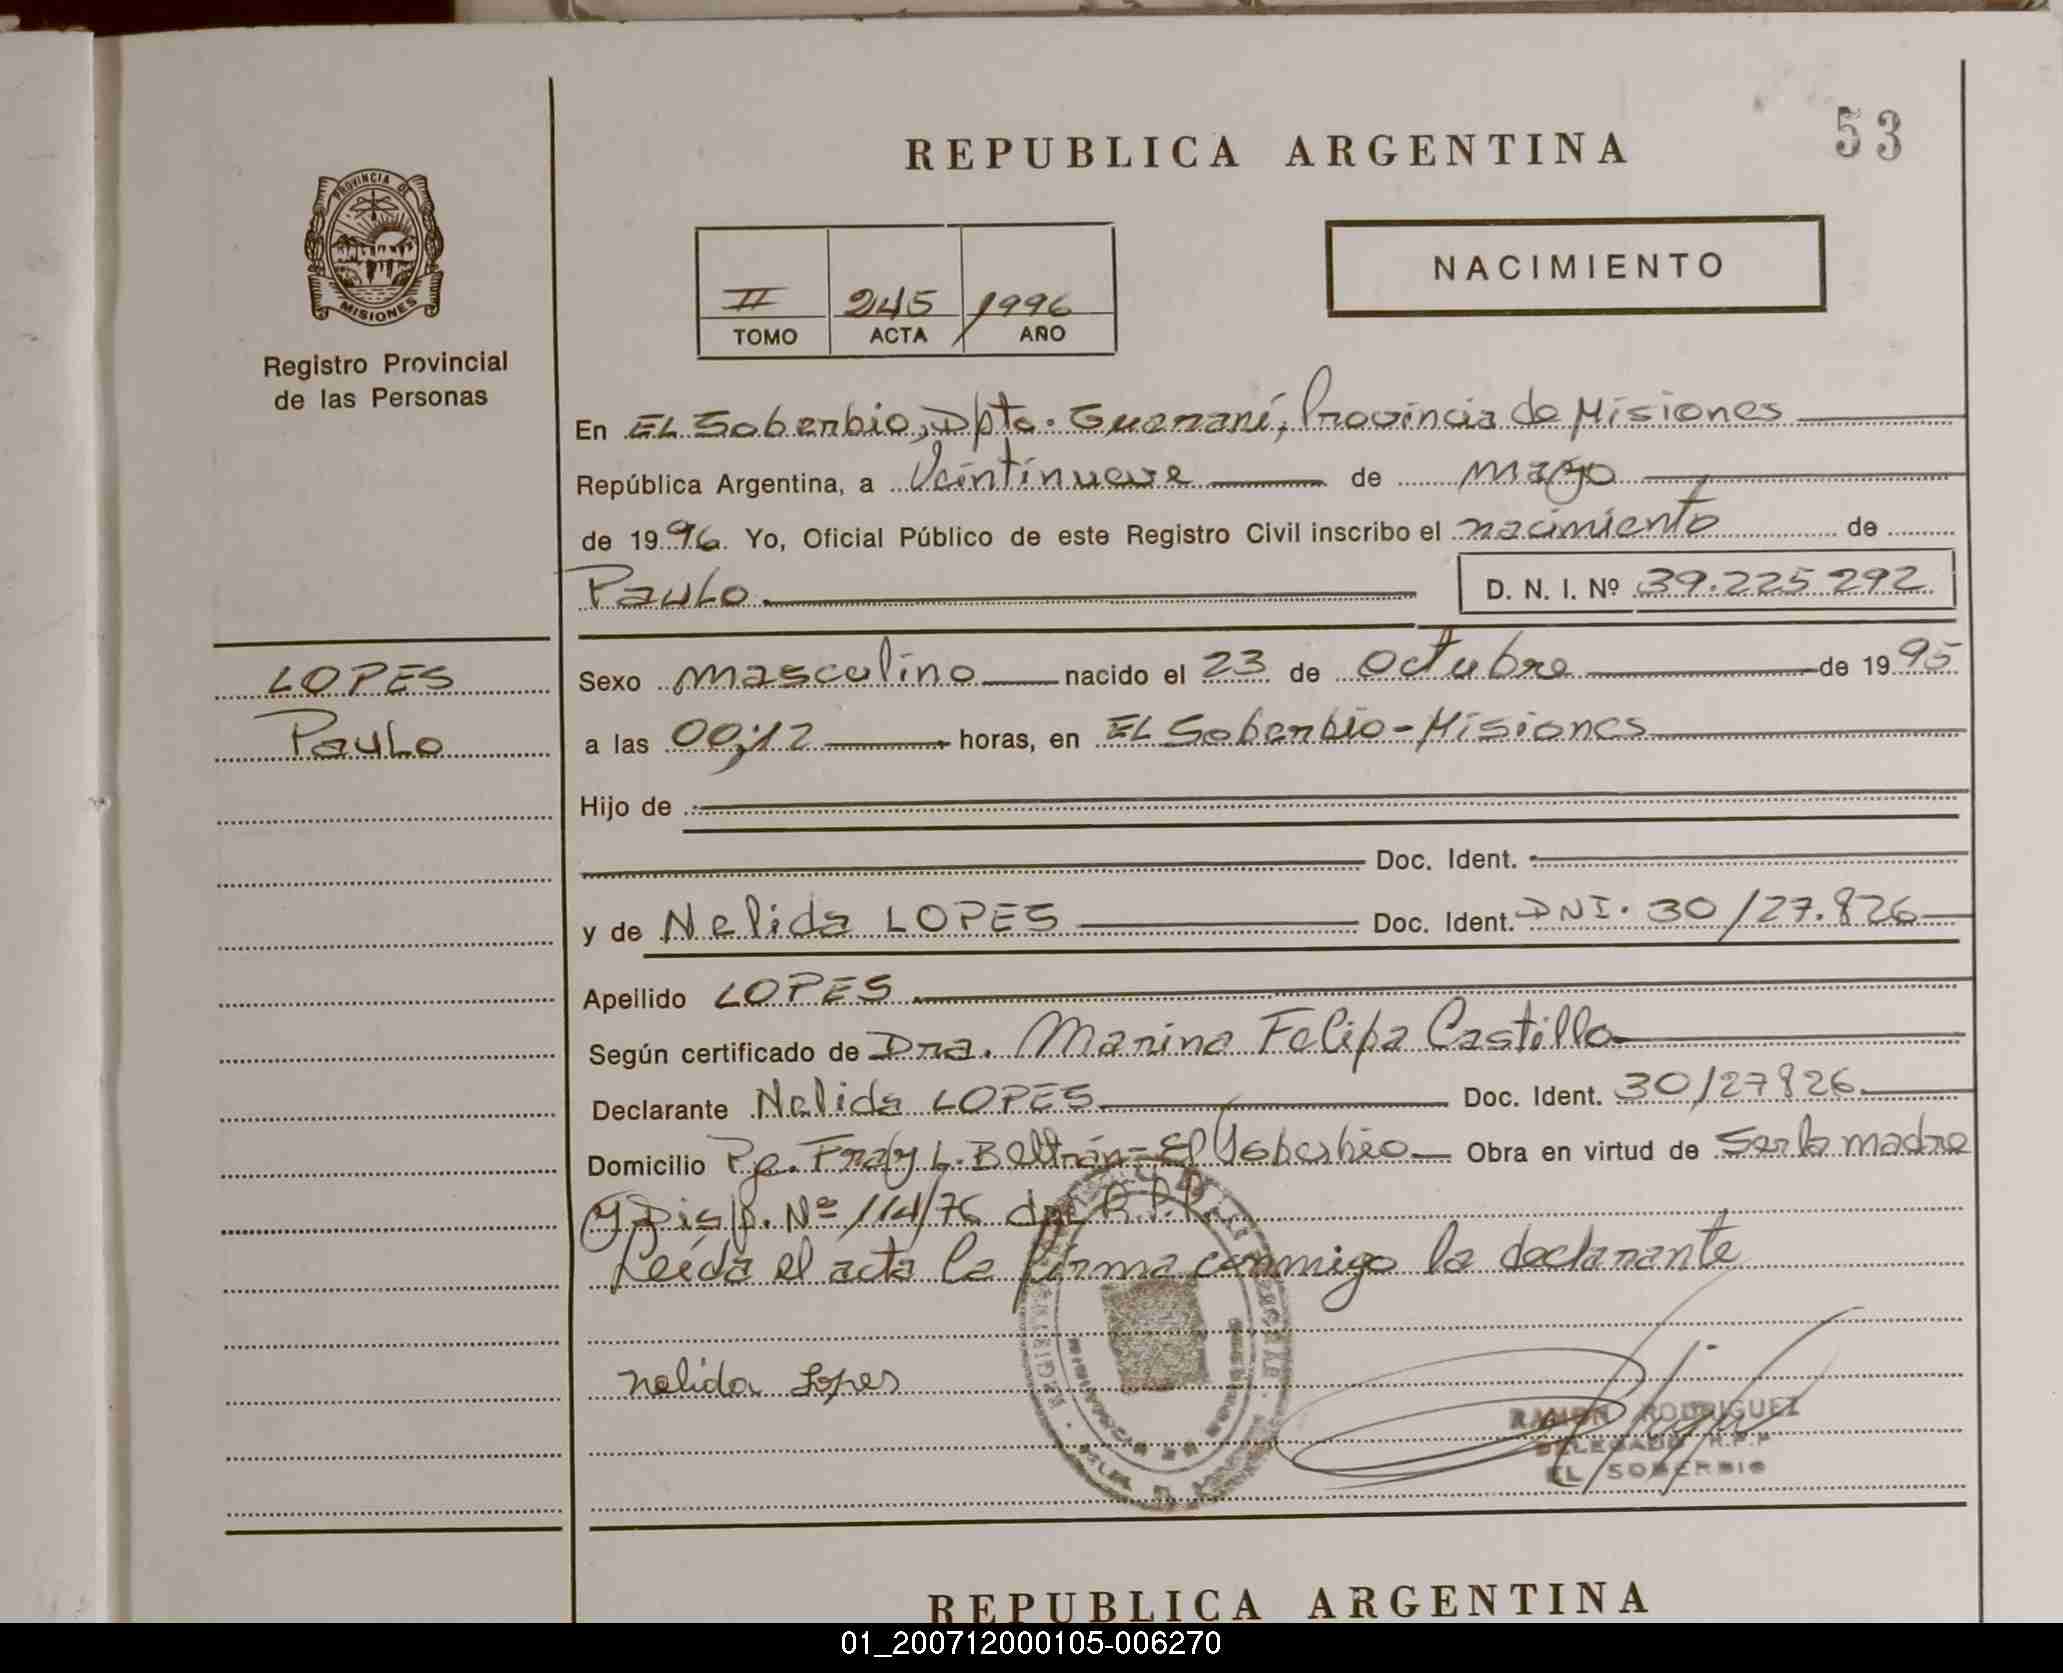 REPUBLICA ARGENTINA
53
PROVINCIA DE
MISIONES
Registro Provincial
de las Personas
NACIMIENTO
II 245 1996
TOMO ACTA AÑO
En EL Soberbio, Dpto. Guaraní, Provincia de Misiones
República Argentina, a Veintinueve de mayo
de 1996. Yo, Oficial Público de este Registro Civil inscribo el nacimiento de
Paulo D. N. I. Nº 39.225.292
LOPES
Paulo
Sexo masculino nacido el 23 de Octubre de 1995
a las 00;12 horas, en EL Soberbio - Misiones
Hijo de
Doc. Ident.
y de Nelida LOPES Doc. Ident. DNI. 30/27.826
Apellido LOPES
Según certificado de Dra. Marina Felipa Castillo
Declarante Nelida LOPES Doc. Ident. 30/27826
Domicilio Pje. Fray L. Beltrán - El Soberbio Obra en virtud de Ser la madre
y Disp. Nº 114/76 del R.P.P.
Leída el acta la firma conmigo la declarante
nelida Lopes
RAMON RODRIGUEZ
DELEGADO R.P.P
EL SOBERBIO
REPUBLICA ARGENTINA
01_200712000105-006270